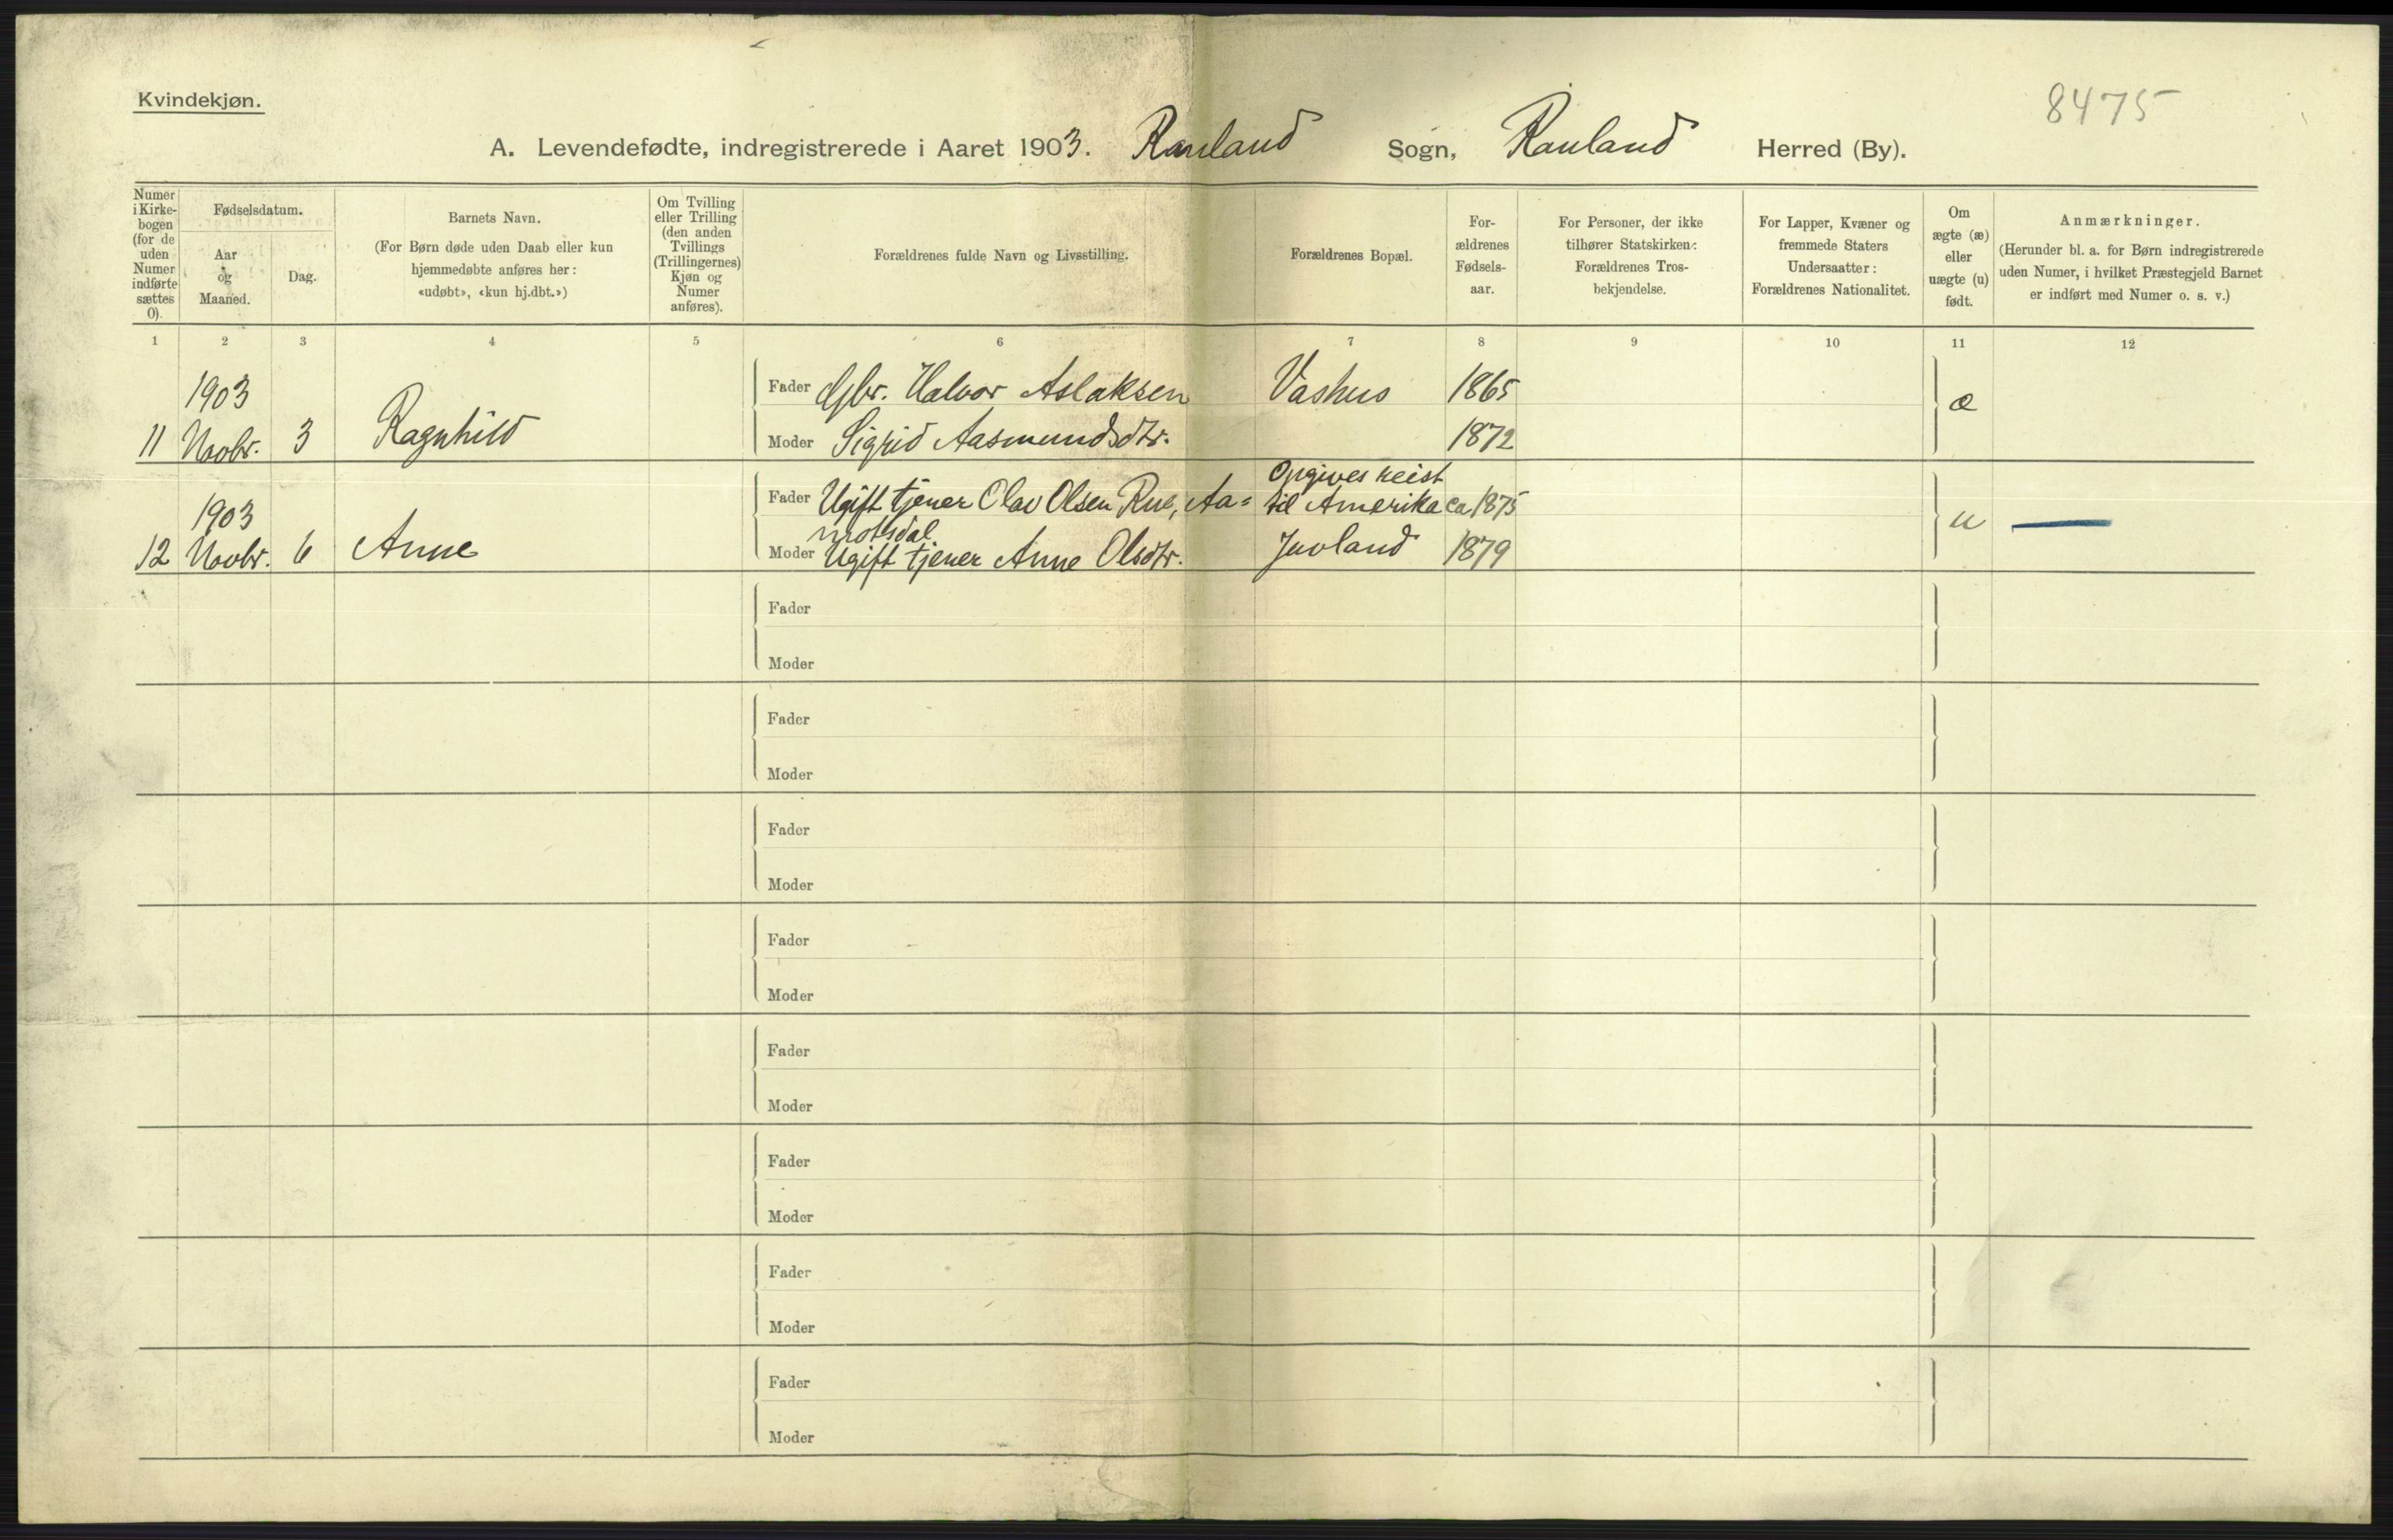 Kvindekjøn.
8475
A. Levendefødte, indregistrerede i Aaret 1903. Rauland Sogn, Rauland Herred (By).
Numer i Kirke- bogen (for de uden Numer indførte sættes 0).
Fødselsdatum.
Aar og Maaned.
Dag.
Barnets Navn.
(For Børn døde uden Daab eller kun
hjemmedøbte anføres her:
«udøbt», «kun hj.dbt.»)
Om Tvilling
eller Trilling
(den anden
Tvillings
(Trillingernes)
Kjøn og
Numer
anføres).
Forældrenes fulde Navn og Livsstilling.
Forældrenes Bopæl.
For-
ældrenes
Fødsels-
aar.
For Personer, der ikke
tilhører Statskirken:
Forældrenes Tros-
bekjendelse.
For Lapper, Kvæner og
fremmede Staters
Undersaatter:
Forældrenes Nationalitet.
Om
ægte (æ)
eller
uægte (u)
født.
Anmærkninger.
(Herunder bl. a. for Børn indregistrerede
uden Numer, i hvilket Præstegjeld Barnet
er indført med Numer o. s. v.)
1 2 3 4 5 6 7 8 9 10 11 12
1903 Fader Gbr. Halvor Aslaksen Vashus 1865 æ
11 Novbr. 3 Ragnhild Moder Sigrid Aasmundsdtr. 1872
Opgives reist
1903 Fader Ugift tjener Olav Olsen Rue, Aa= til Amerika ca 1875 u
motsdal
12 Novbr. 6 Anne Moder Ugift tjener Anne Olsdtr. Juvland 1879
Fader
Moder
Fader
Moder
Fader
Moder
Fader
Moder
Fader
Moder
Fader
Moder
Fader
Moder
Fader
Moder